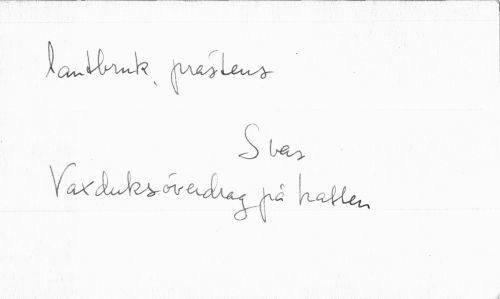 lantbruk, prästens
Svas
Vaxduksöverdrag på hatten